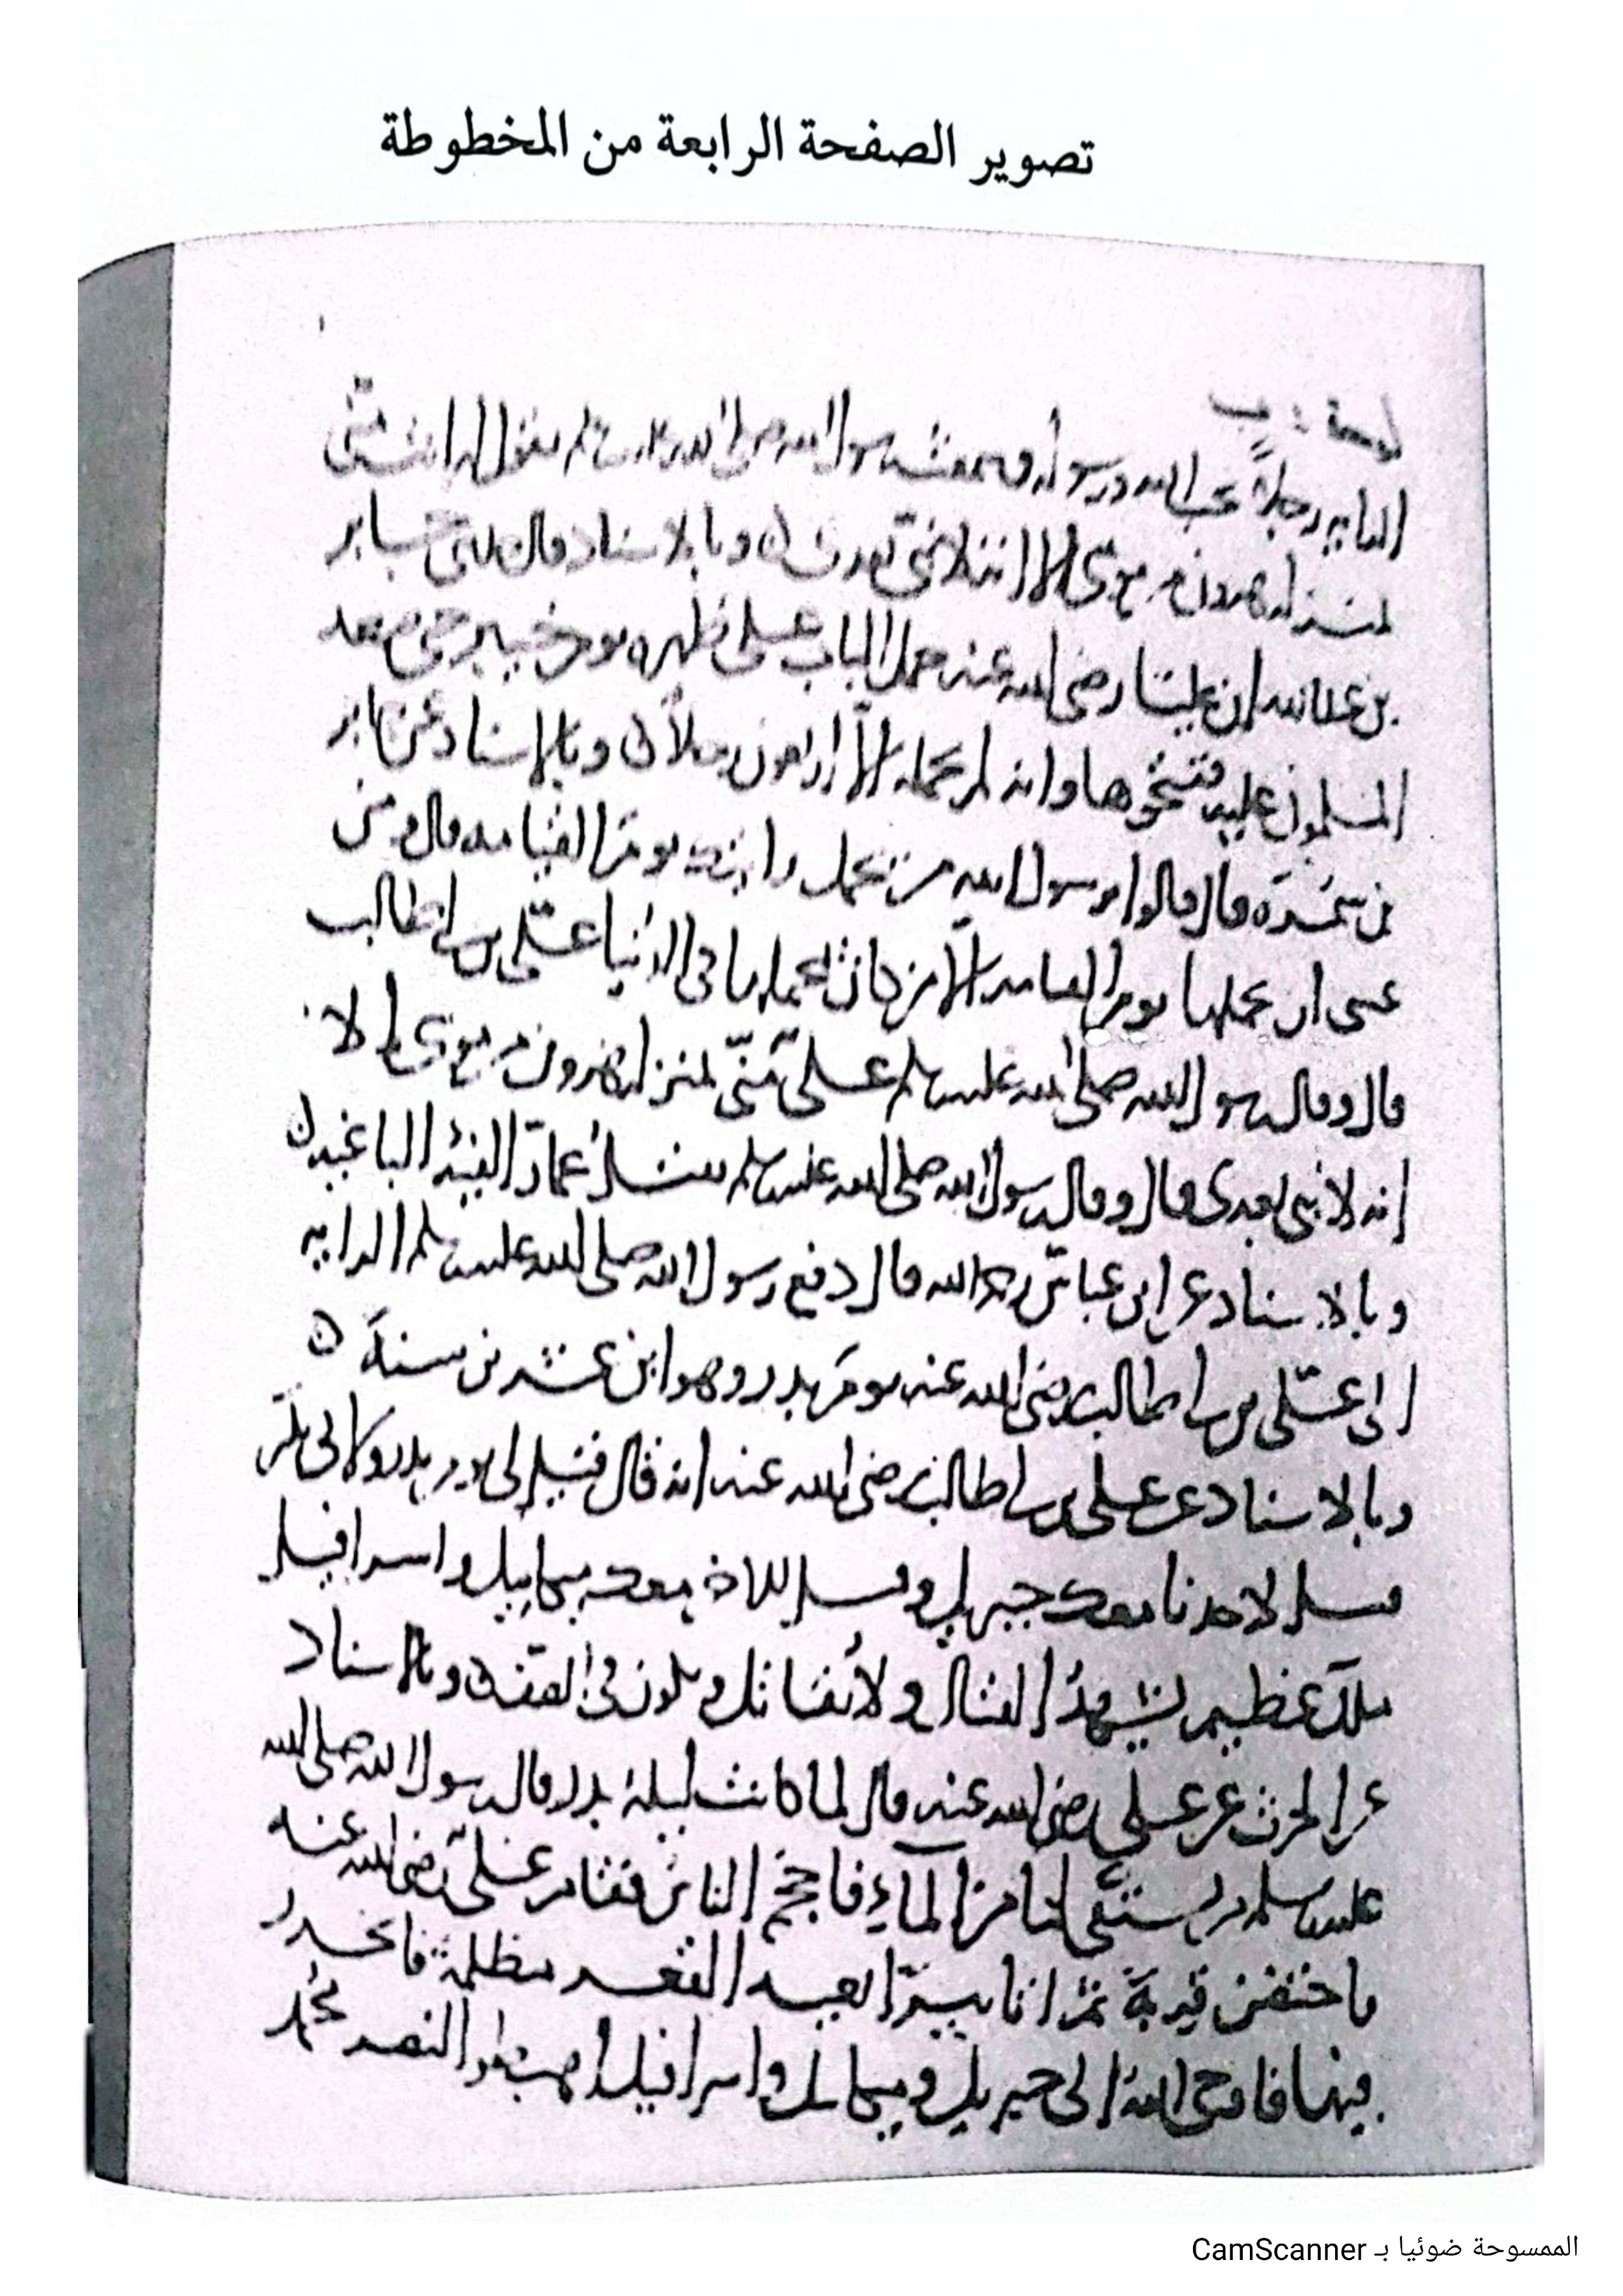 تصوير الصفحة الرابعة من المخطوطة
الراية رجلاً يحب الله ورسوله وسمعت رسول الله صلى الله عليه وسلم يقول له انت منى
بمنزله هرون من موسى الا انه لا نبى بعدى وبالاسناد قال حدثنى جابر
بن عبد الله ان عليا رضى الله عنه حمل الباب على ظهره يوم خيبر حتى صعد
المسلمون عليه ففتحوها وانه لم يحمله الا اربعون رجلاً وبالاسناد عن جابر
بن سمرة قال قالوا يا رسول الله من يحمل رايتك يوم القيامه قال ومن
عسى ان يحملها يوم القيامه الا من كان يحملها فى الدنيا على بن ابى طالب
قال وقال رسول الله صلى الله عليه وسلم على منى بمنزله هرون من موسى الا
انه لا نبى بعدى قال وقال رسول الله صلى الله عليه وسلم تقتل عمار الفئة الباغيه
وبالاسناد عن ابن عباس رحمه الله قال دفع رسول الله صلى الله عليه وسلم الرايه
الى على بن ابى طالب رضى الله عنه يوم بدر وهو ابن عشرين سنة
وبالاسناد عن على بن ابى طالب رضى الله عنه انه قال قيل لى يوم بدر ولابى بكر
قيل لاحدنا معك جبريل وقيل للاخر معك ميكاييل واسرافيل
ملك عظيم يشهد القتال ولا يقاتل ويكون فى الصف وبالاسناد
عن الحرث عن على رضى الله عنه قال لما كانت ليلة بدر قال رسول الله صلى الله
عليه وسلم من يستقى لنا من المآء فاحجم الناس فقام على رضى الله عنه
فاحتضن قربة ثم اتا بيرا بعيده القعر مظلمة فانحدر
فيها فاوحى الله الى جبريل وميكايل واسرافيل لنصر محمد
الممسوحة ضوئيا بـ CamScanner